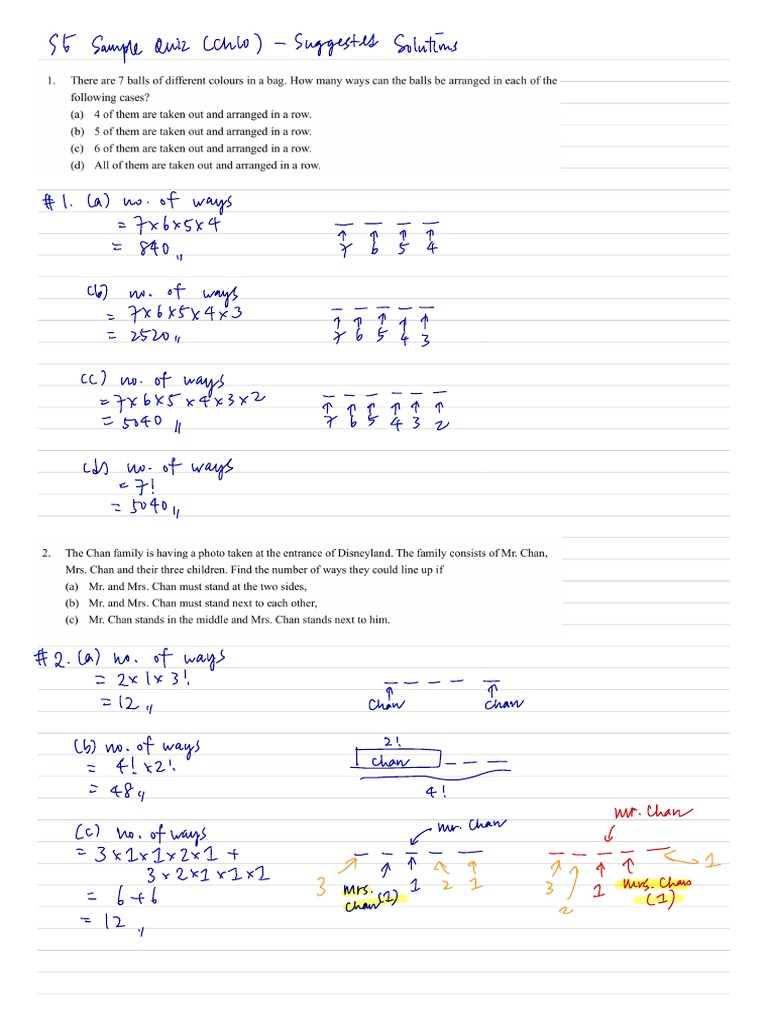 S5 Sample Quiz (Ch10) - Suggestes Solutions
1. There are 7 balls of different colours in a bag. How many ways can the balls be arranged in each of the
following cases?
(a) 4 of them are taken out and arranged in a row.
(b) 5 of them are taken out and arranged in a row.
(c) 6 of them are taken out and arranged in a row.
(d) All of them are taken out and arranged in a row.
#1. (a) no. of ways
= 7×6×5×4
= 840
7 6 5 4
(b) no. of ways
= 7×6×5×4×3
= 2520
7 6 5 4 3
(c) no. of ways
= 7×6×5×4×3×2
= 5040
7 6 5 4 3 2
(d) no. of ways
= 7!
= 5040
2. The Chan family is having a photo taken at the entrance of Disneyland. The family consists of Mr. Chan,
Mrs. Chan and their three children. Find the number of ways they could line up if
(a) Mr. and Mrs. Chan must stand at the two sides,
(b) Mr. and Mrs. Chan must stand next to each other,
(c) Mr. Chan stands in the middle and Mrs. Chan stands next to him.
#2. (a) no. of ways
= 2×1×3!
= 12
Chan Chan
(b) no. of ways
= 4!×2!
= 48
2!
Chan
4!
(c) no. of ways
= 3×1×1×2×1 +
3×2×1×1×1
= 6+6
= 12
Mr. Chan
3 Mrs. 1 2 1
Chan (1)
Mr. Chan
3 2 1 Mrs. Chan 1
(1)